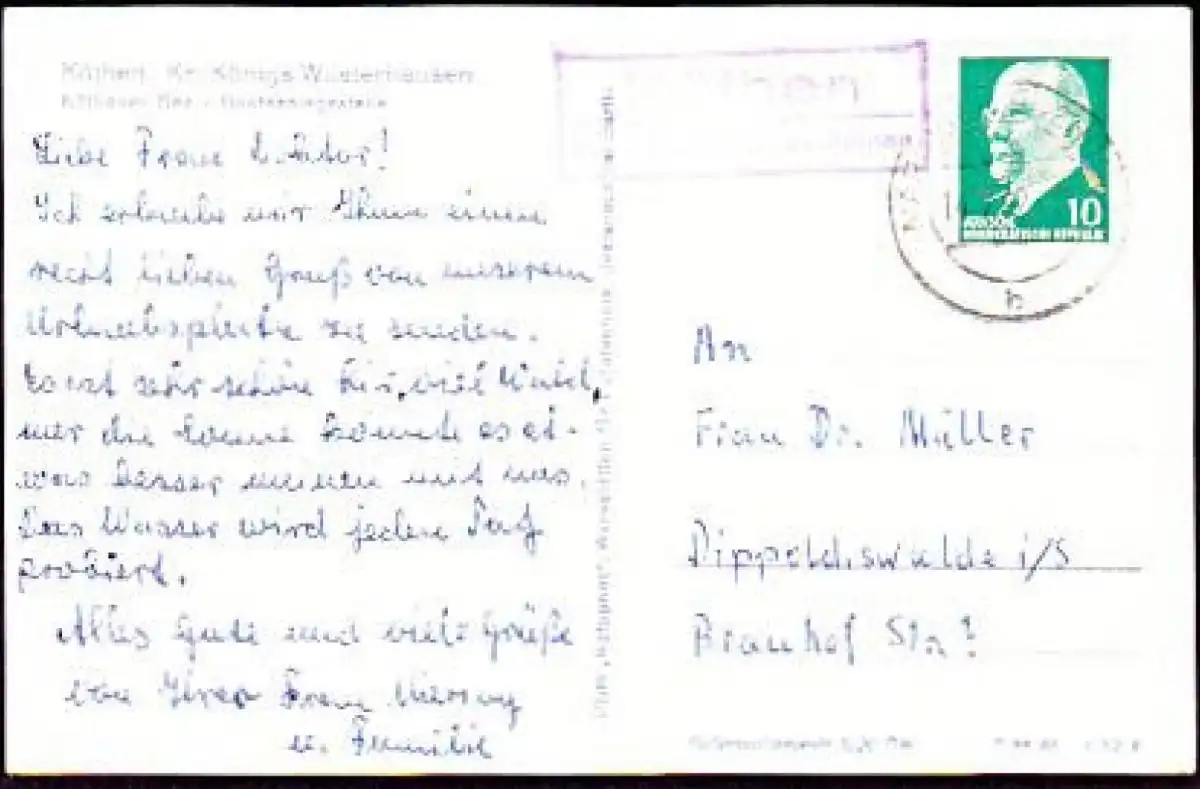 Köthen, Kr. Königs Wusterhausen
Liebe Frau Doktor!
Ich erlaube mir Ihnen einen
recht lieben Gruß von unserem
Urlaubsplatz zu senden.
Es ist sehr schön hier, viel Wald,
nur die Sonne könnte es et-
was besser meinen mit uns.
Das Wasser wird jeden Tag
probiert.
Alles Gute und viele Grüße
von Ihrer Frau
u. Familie
10
DEMOKRATISCHE REPUBLIK
b
An
Frau Dr. Müller
Dippoldiswalde i/S
Brauhof Str?